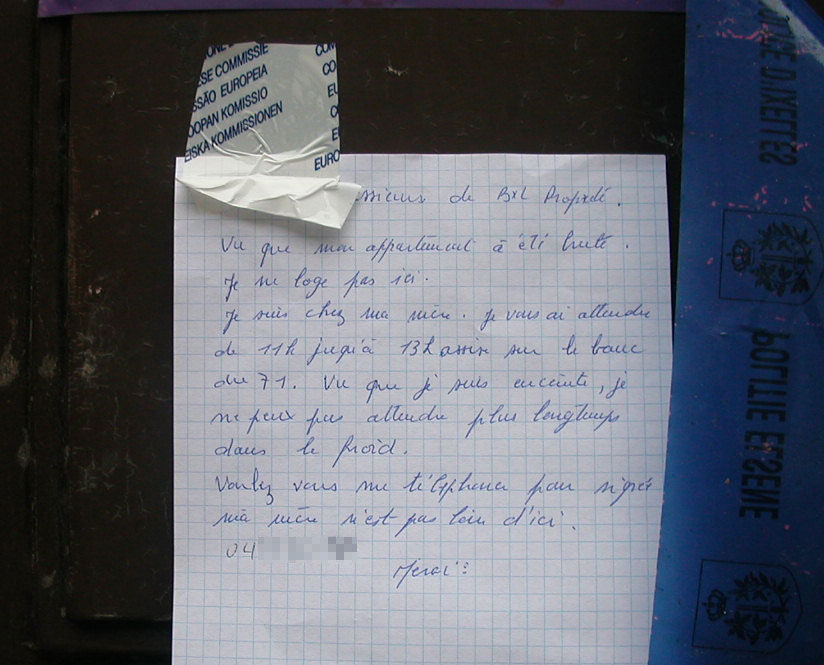 ONE
ESE COMMISSIE
SSÃO EUROPEIA
OOPAN KOMISSIO
EISKA KOMMISSIONEN
COM
CO
EU
C
E
EURO
ssieurs de BXL Propreté.
Vu que mon appartement à été brulé.
Je ne loge pas ici.
Je suis chez ma mère. Je vous ai attendre
de 11h juqu'à 13h assise sur le banc
du 71. Vu que je suis enceinte, je
ne peux pas attendre plus longtemps
dans le froid.
Voulez vous me téléphoner pour signer
ma mère n'est pas loin d'ici.
04
Merci
POLITIE ELSENE
D'IXELLES